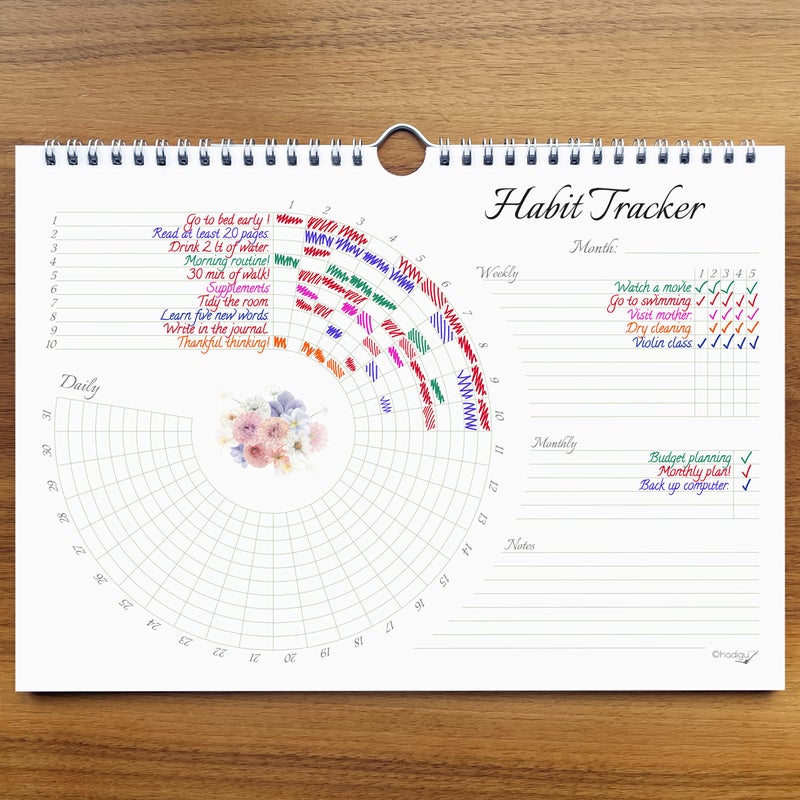 Habit Tracker
Month:
1 Go to bed early !
2 Read at least 20 pages.
3 Drink 2 lt of water.
4 Morning routine!
5 30 min. of walk!
6 Supplements
7 Tidy the room
8 Learn five new words.
9 Write in the journal.
10 Thankful thinking!
Daily
1
2
3
4
5
6
7
8
9
10
11
12
13
14
15
16
17
18
19
20
21
22
23
24
25
26
27
28
29
30
31
Weekly
1 2 3 4 5
Watch a movie
Go to swimming
Visit mother.
Dry cleaning
Violin class.
Monthly
Budget planning
Monthly plan!
Back up computer.
Notes
©hadigu